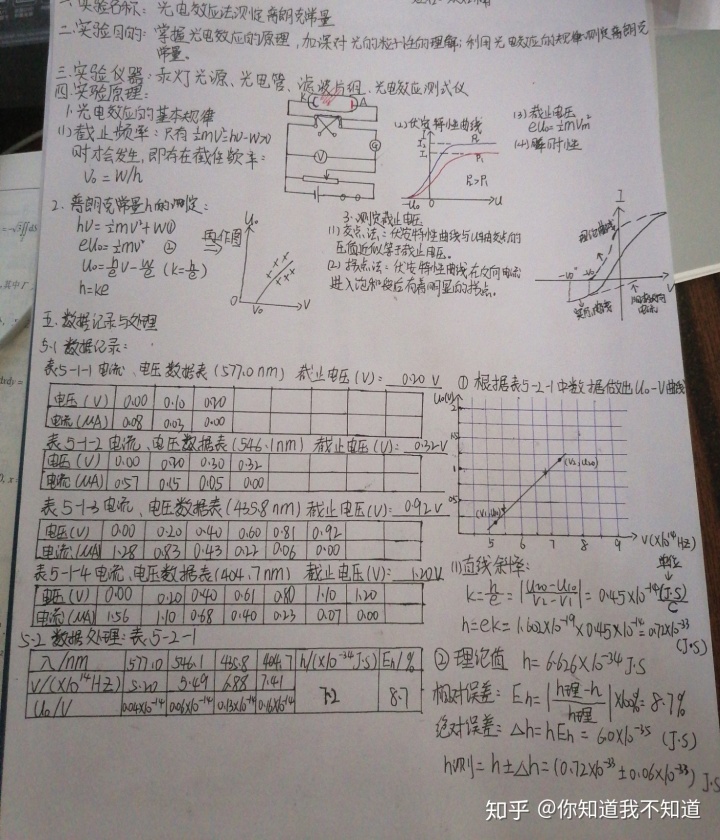 一.实验名称：光电效应法测定普朗克常量
二.实验目的：掌握光电效应的原理，加深对光的粒子性的理解；利用光电效应的规律测定普朗克
常量。
三.实验仪器：汞灯光源、光电管、滤波片组、光电效应测试仪
四.实验原理：
1.光电效应的基本规律
(1)截止频率：只有½mv²=hν-W>0
时才会发生，即存在截止频率：
ν₀=W/h
K A
G
V
(2)伏安特性曲线
I
I₂ P₂
I₁ P₁
P₂>P₁
-U₀ 0 U
(3)截止电压
eU₀=½mVm²
(4)瞬时性
2.普朗克常量h的测定：
hν=½mv²+W①
eU₀=½mv² ②
U₀=h/e ν-W/e (k=h/e)
h=ke
作图
U₀
0 ν₀ ν
3.测定截止电压
(1)交点法：伏安特性曲线与U轴交点的
压值近似等于截止电压。
(2)拐点法：伏安特性曲线在反向电流
进入饱和段后有着明显的拐点。
I
理论曲线
实测曲线
五.数据记录与处理
5.1数据记录：
表5-1-1 电流、电压数据表(577.0nm) 截止电压(V)：0.20V
电压(V) 0.00 0.10 0.20
电流(μA) 0.08 0.03 0.00
表5-1-2 电流、电压数据表(546.1nm) 截止电压(V)：0.32V
电压(V) 0.00 0.20 0.30 0.32
电流(μA) 0.57 0.15 0.05 0.00
表5-1-3 电流、电压数据表(435.8nm) 截止电压(V)：0.92V
电压(V) 0.00 0.20 0.40 0.60 0.81 0.92
电流(μA) 1.28 0.83 0.43 0.22 0.06 0.00
表5-1-4 电流、电压数据表(404.7nm) 截止电压(V)：1.20V
电压(V) 0.00 0.20 0.40 0.61 0.80 1.10 1.20
电流(μA) 1.56 1.10 0.68 0.40 0.23 0.07 0.00
5.2 数据处理：表5-2-1
λ/nm 577.0 546.1 435.8 404.7 h/(×10⁻³⁴J·S) Eh/%
ν/(×10¹⁴Hz) 5.20 5.49 6.88 7.41 7.2 8.7
U₀/V 0.04×10⁻¹⁴ 0.06×10⁻¹⁴ 0.13×10⁻¹⁴ 0.16×10⁻¹⁴
①根据表5-2-1中数据做出U₀-ν曲线
U₀(V)
2
1.5
1
0.5
(V₁,U₁₀)
(V₂,U₂₀)
5 6 7 8 9 ν(×10¹⁴Hz)
(1)直线斜率：
单位
k=h/e=|U₂₀-U₁₀/ν₂-ν₁|=0.45×10⁻¹⁴(J·S)/C
h=ek=1.602×10⁻¹⁹×0.45×10⁻¹⁴=0.72×10⁻³³
(J·S)
②理论值 h=6.626×10⁻³⁴J·S
相对误差：Eh=|h理-h/h理|×100%=8.7%
绝对误差：Δh=hEh=6.0×10⁻³⁵ (J·S)
h测=h±Δh=(0.72×10⁻³³±0.06×10⁻³³)J·S
知乎 @你知道我不知道